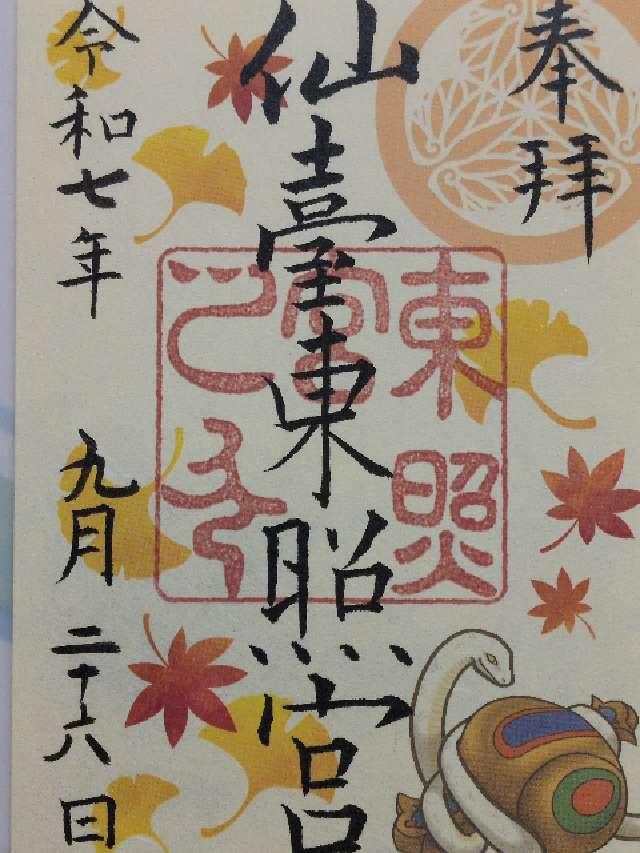 奉拝
仙臺東照宮
東照
宮
巳年
令和七年
九月二十六日